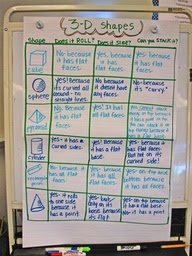 3-D Shapes
Shape Does it ROLL? Does it Slide? Can you STACK it?
cube
No because it has flat faces.
Yes, because it has flat faces.
Yes because it has flat faces.
sphere
Yes! Because its curved all around- no straight lines.
No because it doesn't have any faces.
No because it's "curvy."
pyramid
No because it has flat faces.
Yes! It has all flat faces.
cylinder
Yes - it has a curved sides.
Yes! Because it has a flat base.
Yes because it has flat faces But not on its curved side!
rectangular prism
No because it has all flat faces.
Yes because it has all flat faces.
Yes because it has all flat faces.
cone
Yes - it rolls to one side because it has a point
Yes - but only on its base because its flat
Yes - on top because it has a flat base. No - it has a point.